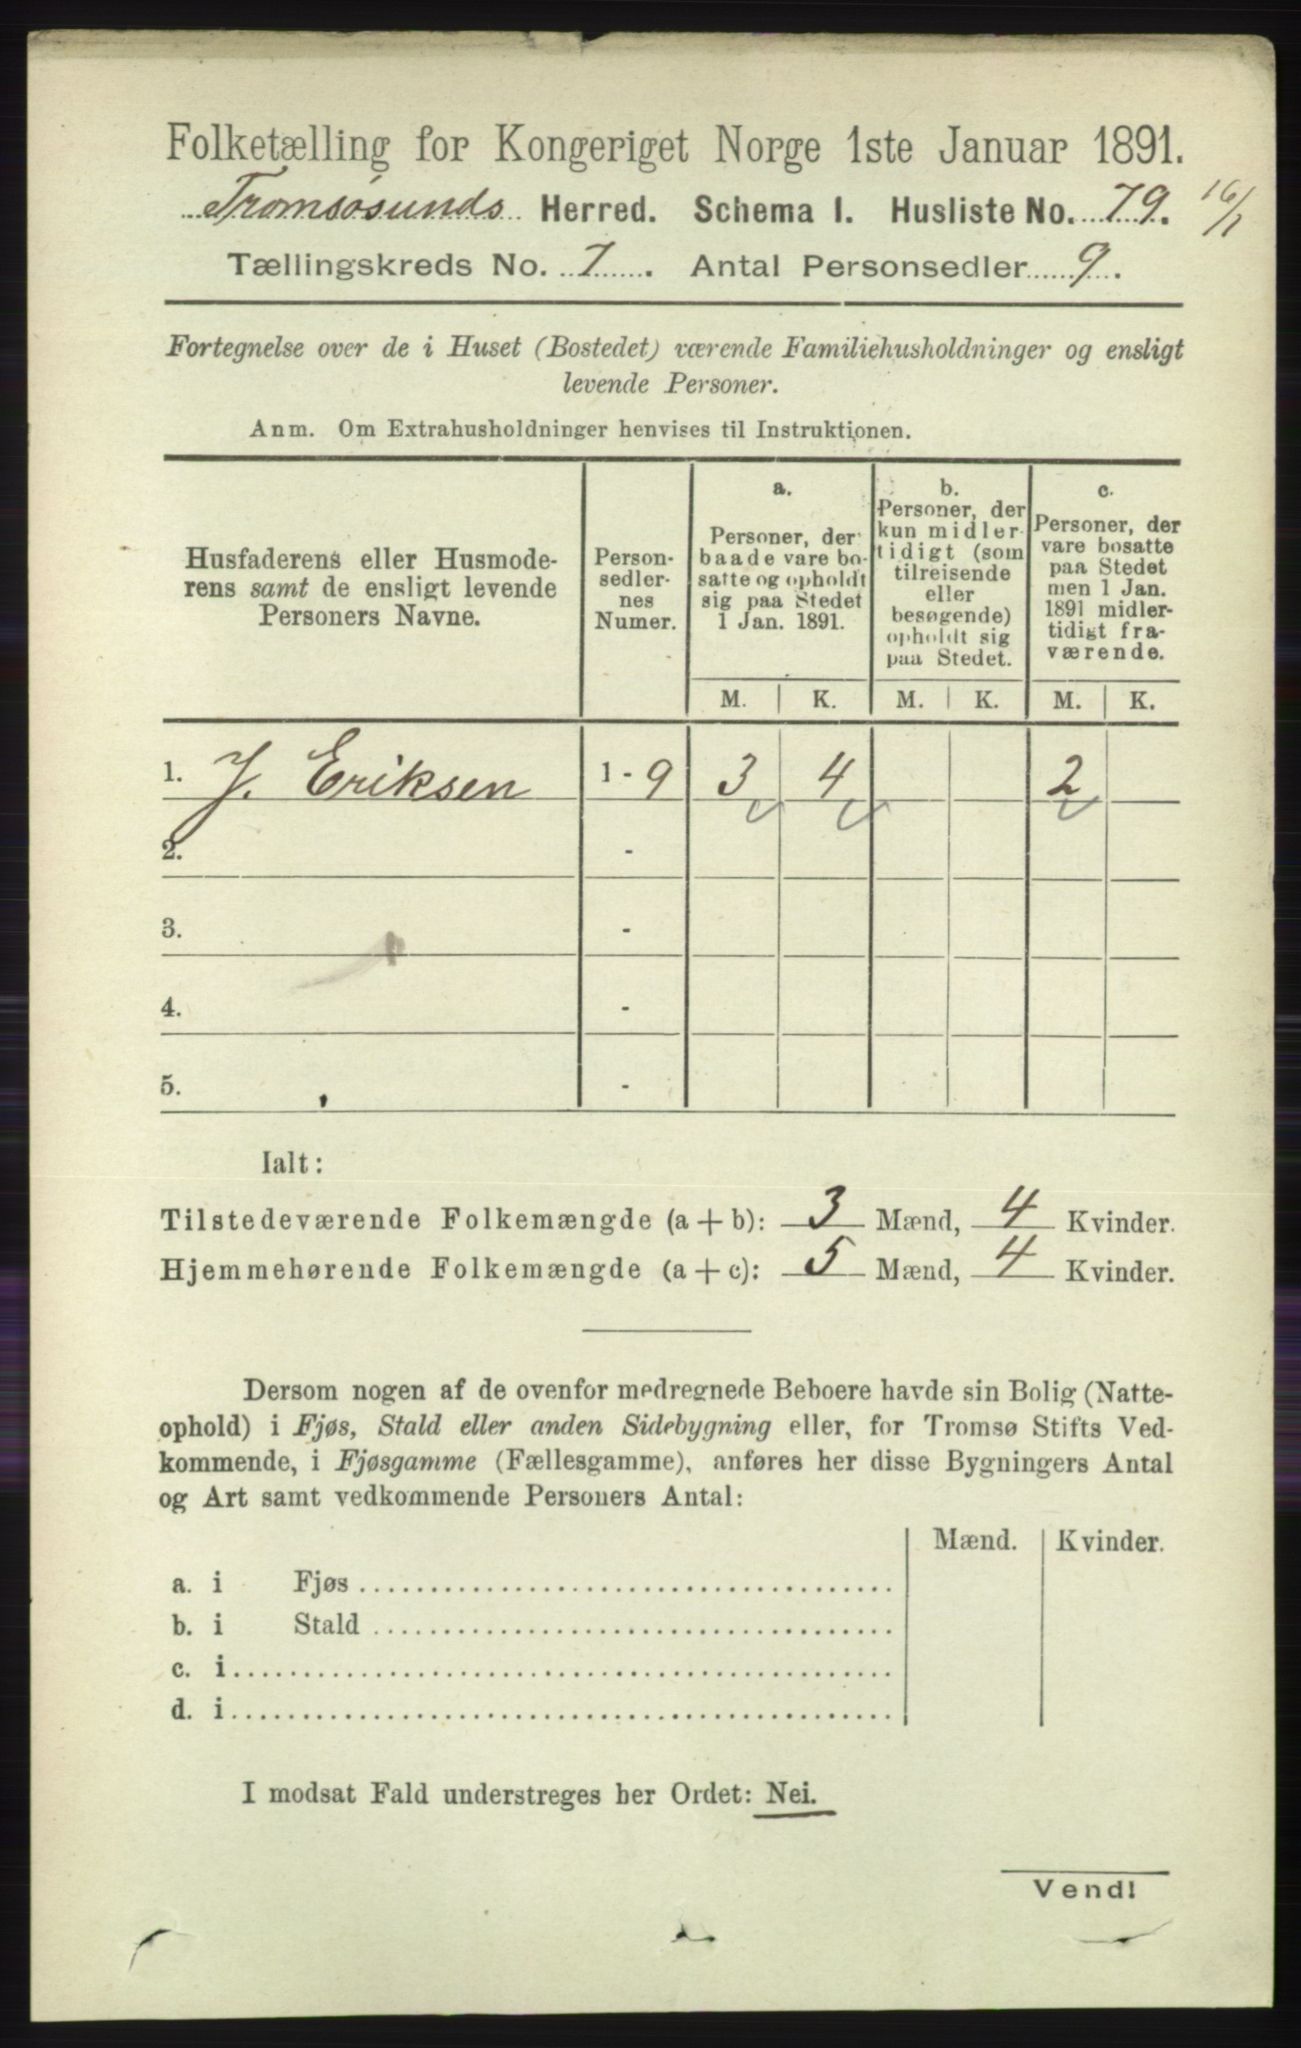 Folketælling for Kongeriget Norge 1ste Januar 1891.
Tromsøsunds Herred. Schema I. Husliste No. 79. 16/1
Tællingskreds No. 7. Antal Personsedler 9.
Fortegnelse over de i Huset (Bostedet) værende Familiehusholdninger og ensligt
levende Personer.
Anm. Om Extrahusholdninger henvises til Instruktionen.
Husfaderens eller Husmode-
rens samt de ensligt levende
Personers Navne.
Person-
sedler-
nes
Numer.
a.
Personer, der
baade vare bo-
satte og opholdt
sig paa Stedet
1 Jan. 1891.
b.
Personer, der
kun midler-
tidigt (som
tilreisende
eller
besøgende)
opholdt sig
paa Stedet.
c.
Personer, der
vare bosatte
paa Stedet
men 1 Jan.
1891 midler-
tidigt fra-
værende.
M. K. M. K. M. K.
1. J. Eriksen 1 - 9 3 4 2
2. -
3. -
4. -
5. -
Ialt:
Tilstedeværende Folkemængde (a + b): 3 Mænd, 4 Kvinder.
Hjemmehørende Folkemængde (a + c): 5 Mænd, 4 Kvinder.
Dersom nogen af de ovenfor medregnede Beboere havde sin Bolig (Natte-
ophold) i Fjøs, Stald eller anden Sidebygning eller, for Tromsø Stifts Ved-
kommende, i Fjøsgamme (Fællesgamme), anføres her disse Bygningers Antal
og Art samt vedkommende Personers Antal:
Mænd. Kvinder.
a. i Fjøs
b. i Stald
c. i
d. i
I modsat Fald understreges her Ordet: Nei.
Vend!